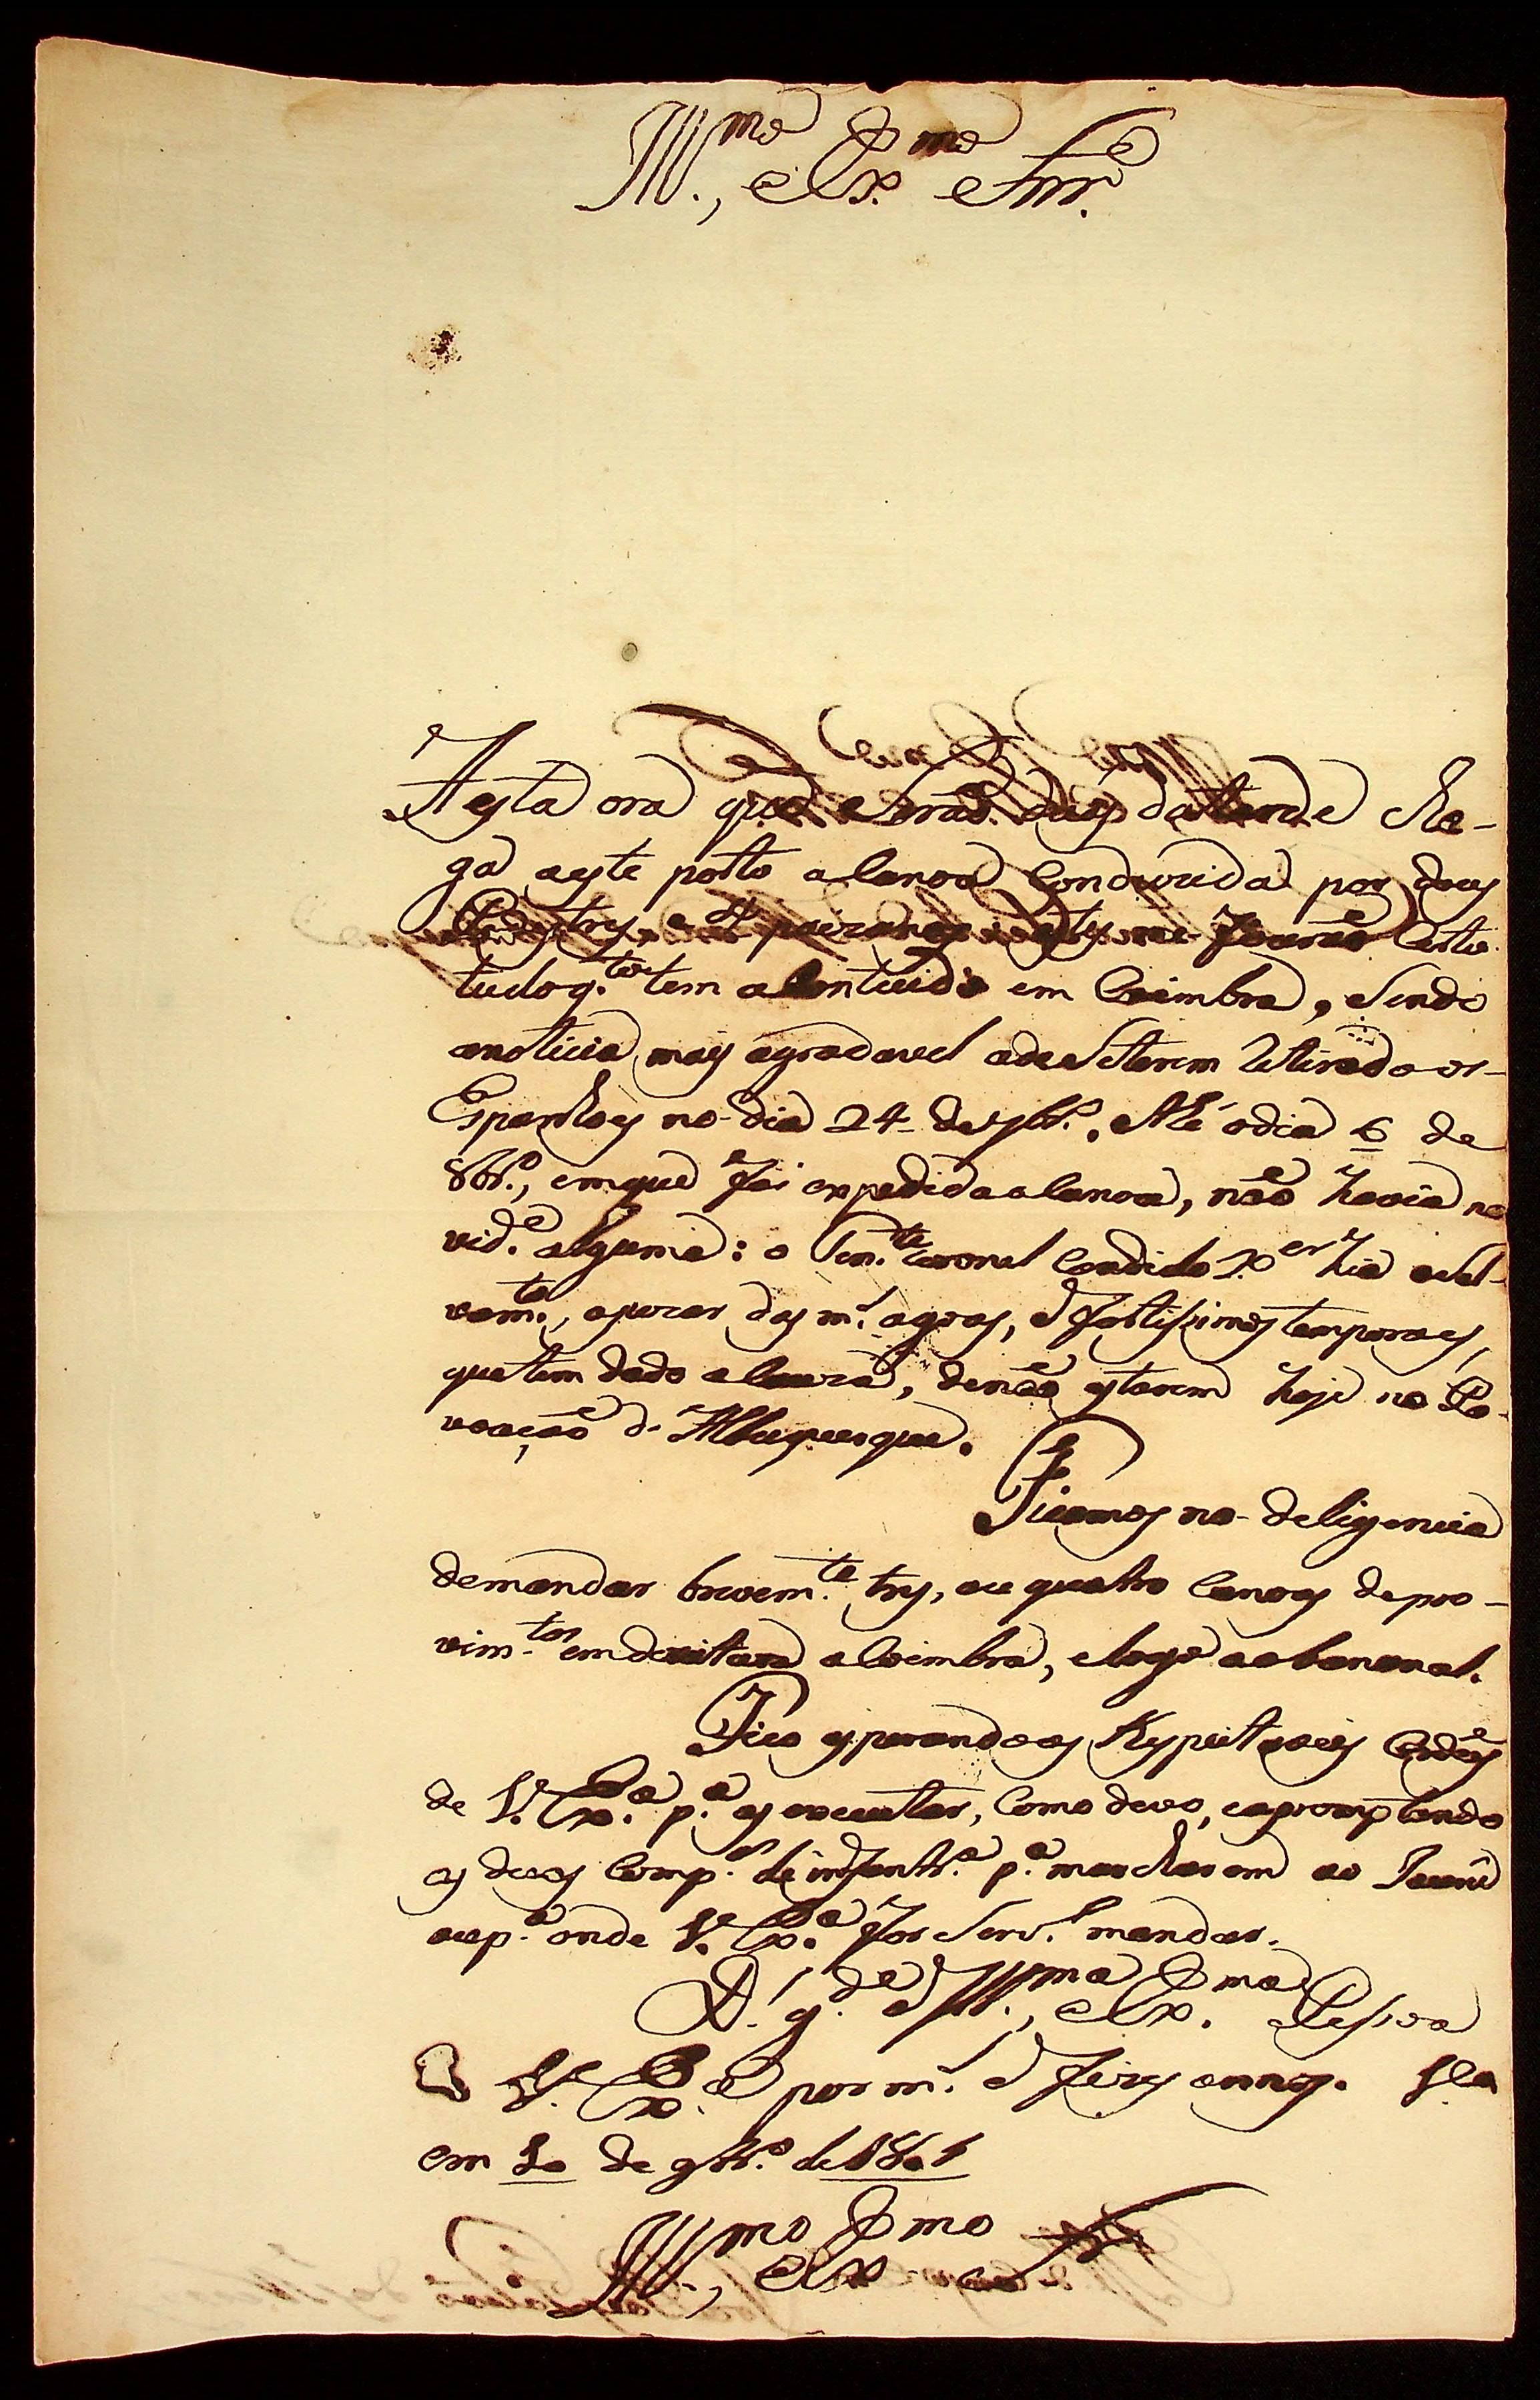 Ill.mo, e Ex.mo Snr.
A esta ora que serão duas da tarde che-
ga a este porto a Canoa Conduzida por dous
Pedestres, e 4 paizanos
tudo q.to tem acontecido em Coimbra, sendo
a noticia mais agradavel a de se terem retirado os
Espanhoes no dia 24 de 7br.o. Até o dia 6 de
8br.o, em que foi expedida a Canoa, não havia no
vid.e alguma: o Ten.te Coronel Candido X.er hia
vam.te, a pezar das m.s agoas, e fortissimos temporaes,
que tem dado a Cauza, de não estarem hoje na Po-
voação d'Albuquerque.
Ficamos na deligencia
de mandar brevem.te tres, ou quatro Canoas de pro-
vim.tos em direitura a Coimbra, e logo ao bananal.
Fico esperando as Respeitaveis Ordẽs
de V. Ex.a p.a as executar, como devo, e apromptando
as duas Comp.as de infantr.a p.a marcharem ao Jaurú
ou p.a onde V. Ex.a for Serv.o mandar.
D.s g.de a Ill.ma, e Ex.ma Pessoa
D V. Ex.a por m.s e felizes annos. V.a
em 10 de 9br.o de 1801
Ill.mo, e Ex.mo Sr.